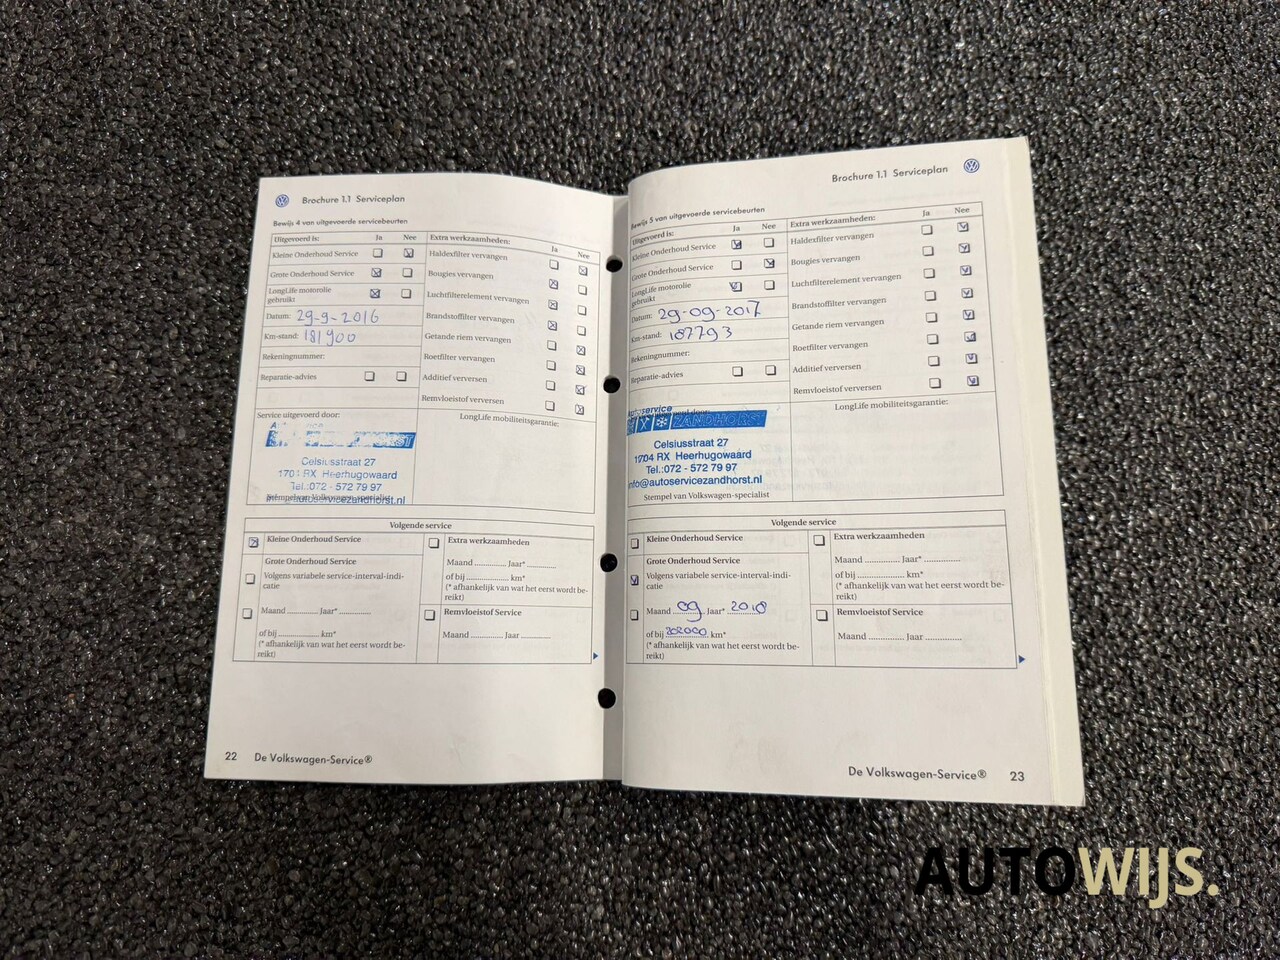 Brochure 1.1 Serviceplan
Bewijs 4 van uitgevoerde servicebeurten
Uitgevoerd is:
Ja
Nee
Kleine Onderhoud Service
Grote Onderhoud Service
LongLife motorolie
gebruikt
Datum: 29-9-2016
Km-stand: 181900
Rekeningnummer:
Reparatie-advies
Extra werkzaamheden:
Ja
Nee
Haldexfilter vervangen
Bougies vervangen
Luchtfilterelement vervangen
Brandstoffilter vervangen
Getande riem vervangen
Roetfilter vervangen
Additief verversen
Remvloeistof verversen
Service uitgevoerd door:
Celsiusstraat 27
1704 RX Heerhugowaard
Tel.:072 - 572 79 97
autoservicezandhorst.nl
LongLife mobiliteitsgarantie:
Volgende service
Kleine Onderhoud Service
Grote Onderhoud Service
Volgens variabele service-interval-indi-
catie
Maand ............ Jaar* ............
of bij ............... km*
(* afhankelijk van wat het eerst wordt be-
reikt)
Extra werkzaamheden
Maand ............ Jaar* ............
of bij ............... km*
(* afhankelijk van wat het eerst wordt be-
reikt)
Remvloeistof Service
Maand ............ Jaar ............
22 De Volkswagen-Service®
Brochure 1.1 Serviceplan
Bewijs 5 van uitgevoerde servicebeurten
Uitgevoerd is:
Ja
Nee
Kleine Onderhoud Service
Grote Onderhoud Service
LongLife motorolie
gebruikt
Datum: 29-09-2017
Km-stand: 187793
Rekeningnummer:
Reparatie-advies
Extra werkzaamheden:
Ja
Nee
Haldexfilter vervangen
Bougies vervangen
Luchtfilterelement vervangen
Brandstoffilter vervangen
Getande riem vervangen
Roetfilter vervangen
Additief verversen
Remvloeistof verversen
autoservice
ZANDHORST
Celsiusstraat 27
1704 RX Heerhugowaard
Tel.:072 - 572 79 97
info@autoservicezandhorst.nl
Stempel van Volkswagen-specialist
LongLife mobiliteitsgarantie:
Volgende service
Kleine Onderhoud Service
Grote Onderhoud Service
Volgens variabele service-interval-indi-
catie
Maand 09 Jaar* 2018
of bij 202000 km*
(* afhankelijk van wat het eerst wordt be-
reikt)
Extra werkzaamheden
Maand ............ Jaar* ............
of bij ............... km*
(* afhankelijk van wat het eerst wordt be-
reikt)
Remvloeistof Service
Maand ............ Jaar ............
De Volkswagen-Service® 23
AUTOWIJS.